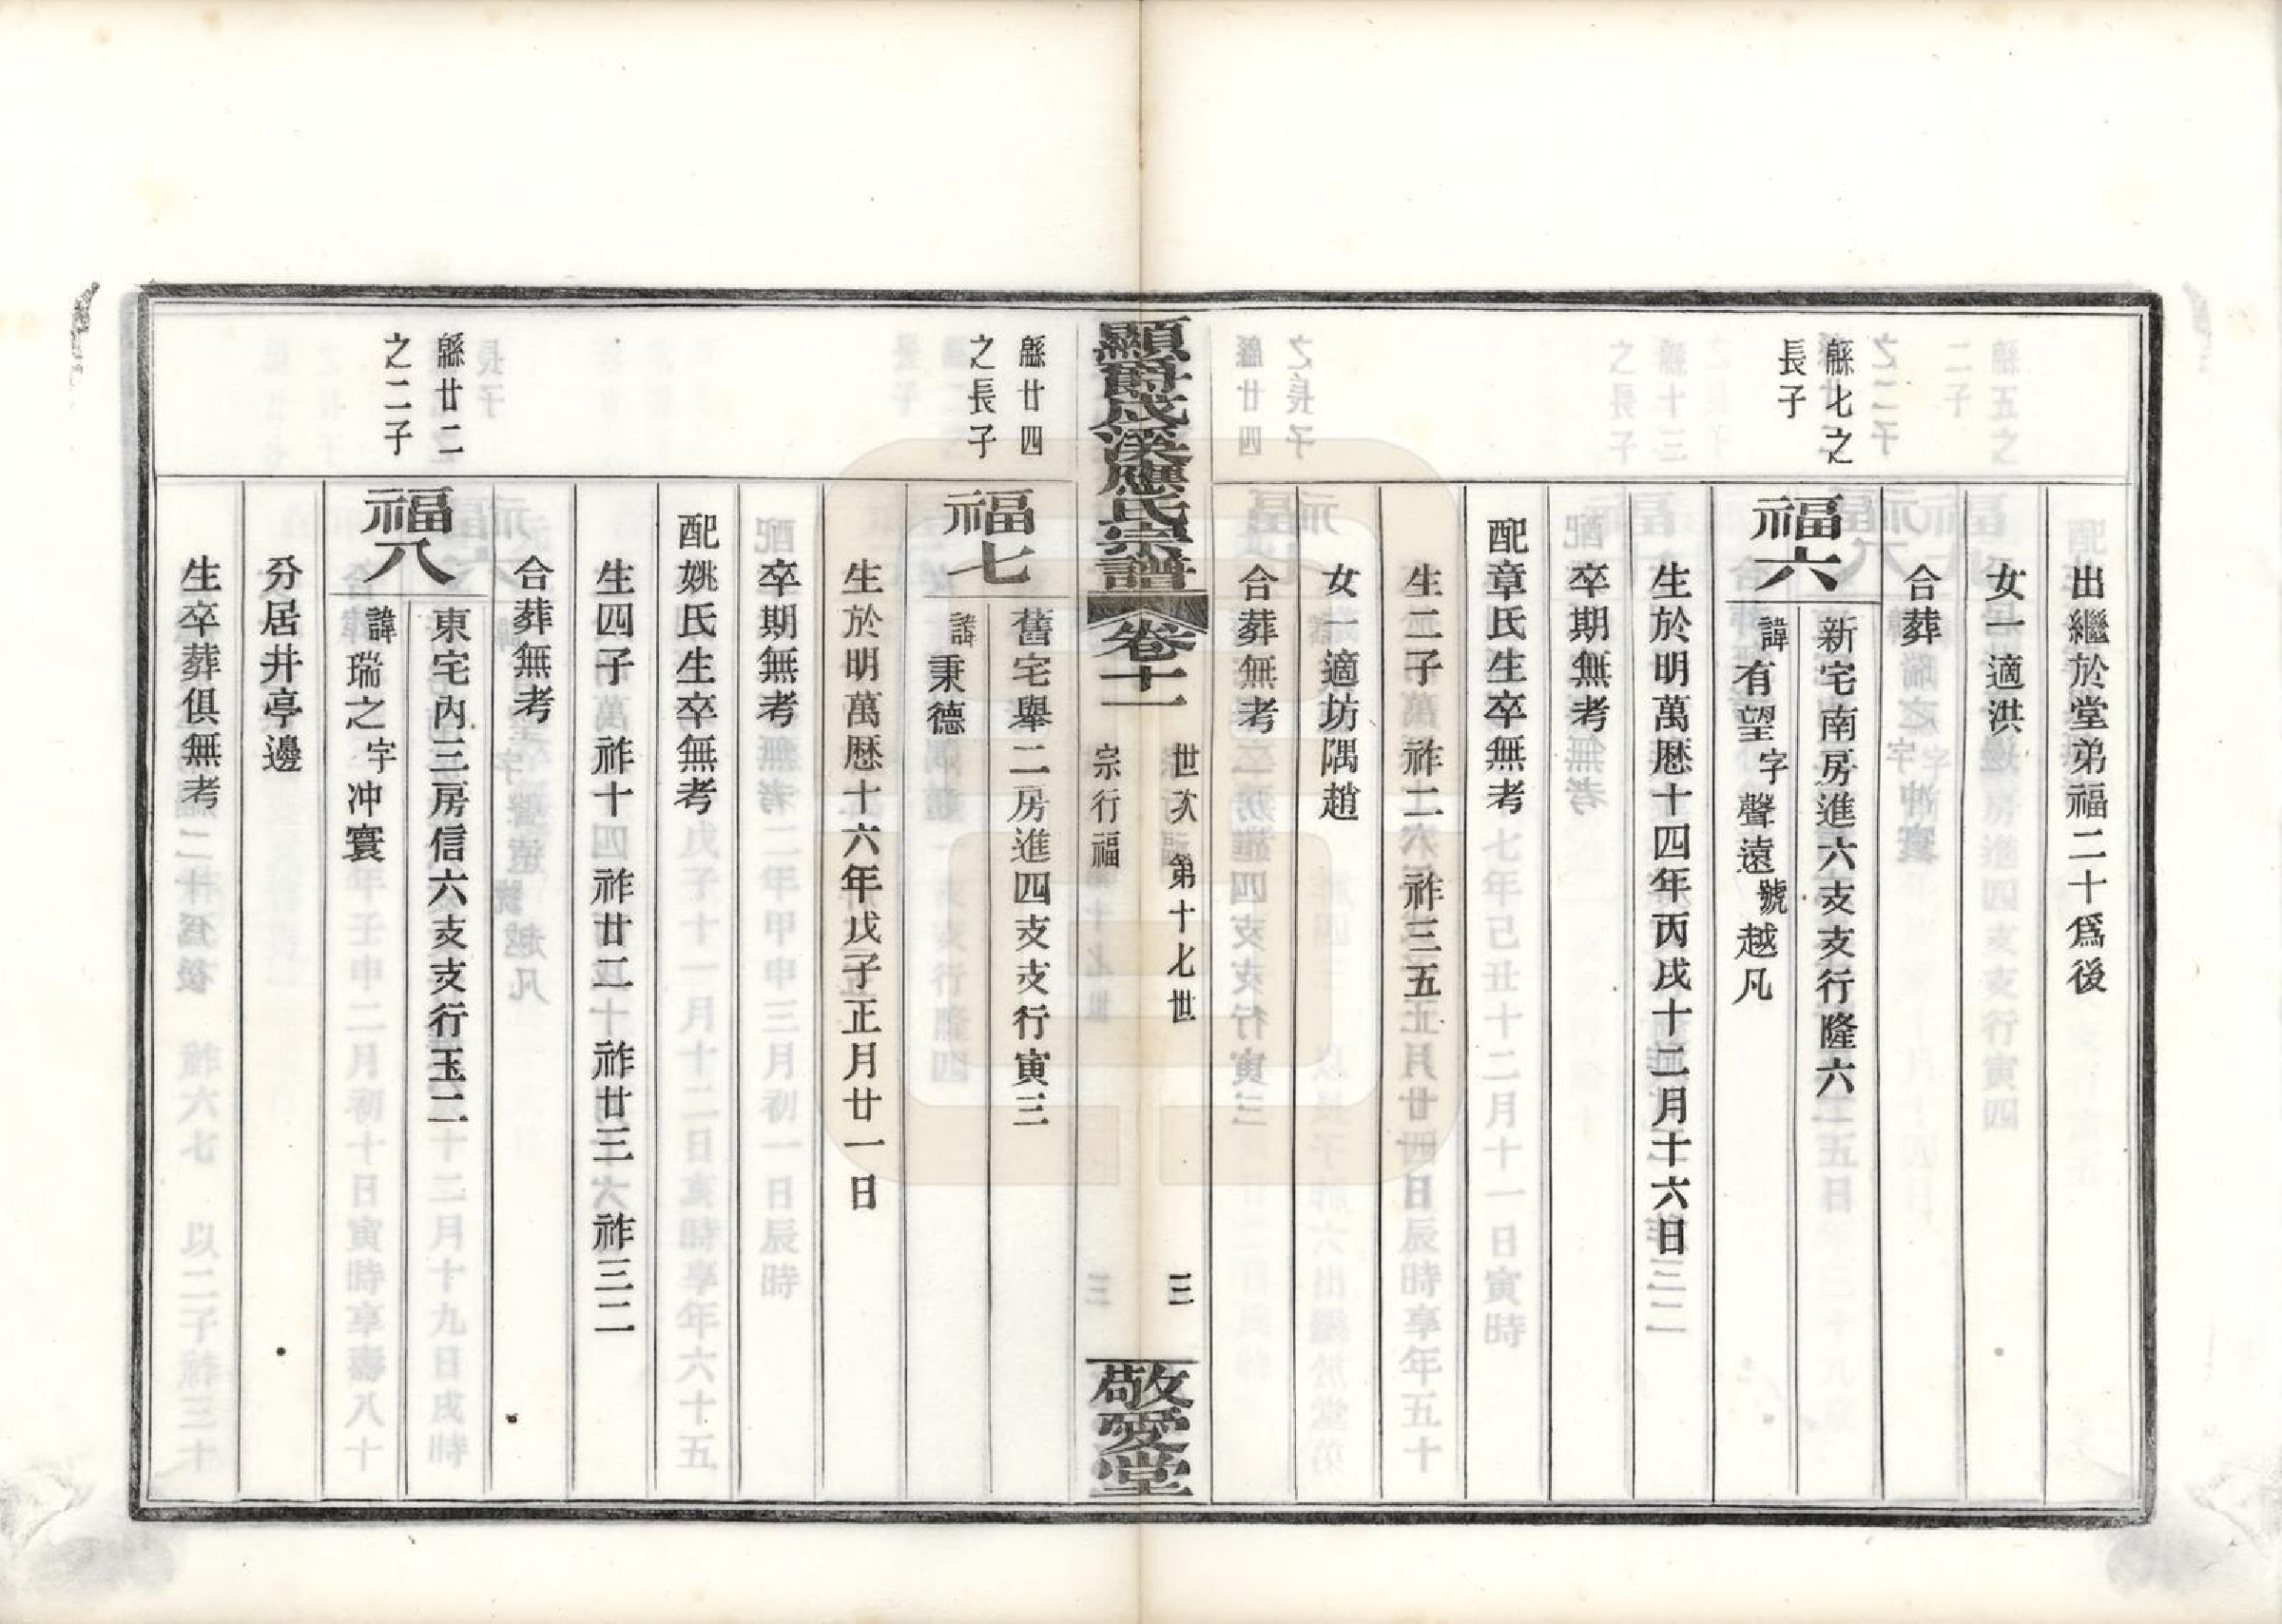 出繼於堂弟福二十爲後
女一適洪
合葬
緜七之
長子
福六
新宅南房進六支支行隆六
諱有望字聲遠號越凡
生於明萬厯十四年丙戌十二月十六日
卒期無考
配章氏生卒無考
生二子 祚二六 祚三五
女一適坊隅趙
合葬無考
顯爵成溪應氏宗譜 卷十一
世次 第十七世
宗行福
三
敬愛堂
緜廿四
之長子
福七
舊宅舉二房進四支支行寅三
諱秉德
生於明萬厯十六年戊子正月廿一日
卒期無考
配姚氏生卒無考
生四子 祚十四 祚廿二 祚廿三 祚三二
合葬無考
緜廿二
之二子
福八
東宅內三房信六支支行玉二
諱瑞之字冲寰
分居井亭邊
生卒葬俱無考